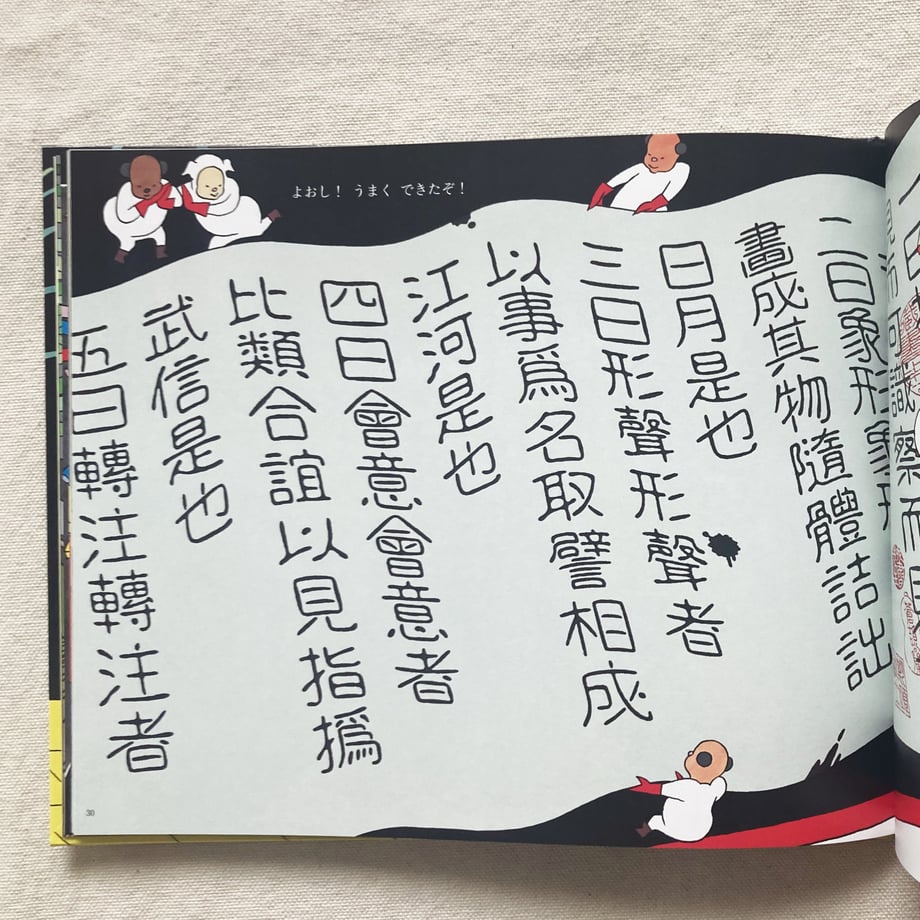 よおし! うまく できたぞ!
識察而
二曰象形象形
畫成其物隨體詰詘
日月是也
三曰形聲形聲者
以事爲名取譬相成
江河是也
四曰會意會意者
比類合誼以見指撝
武信是也
五曰轉注轉注者
30